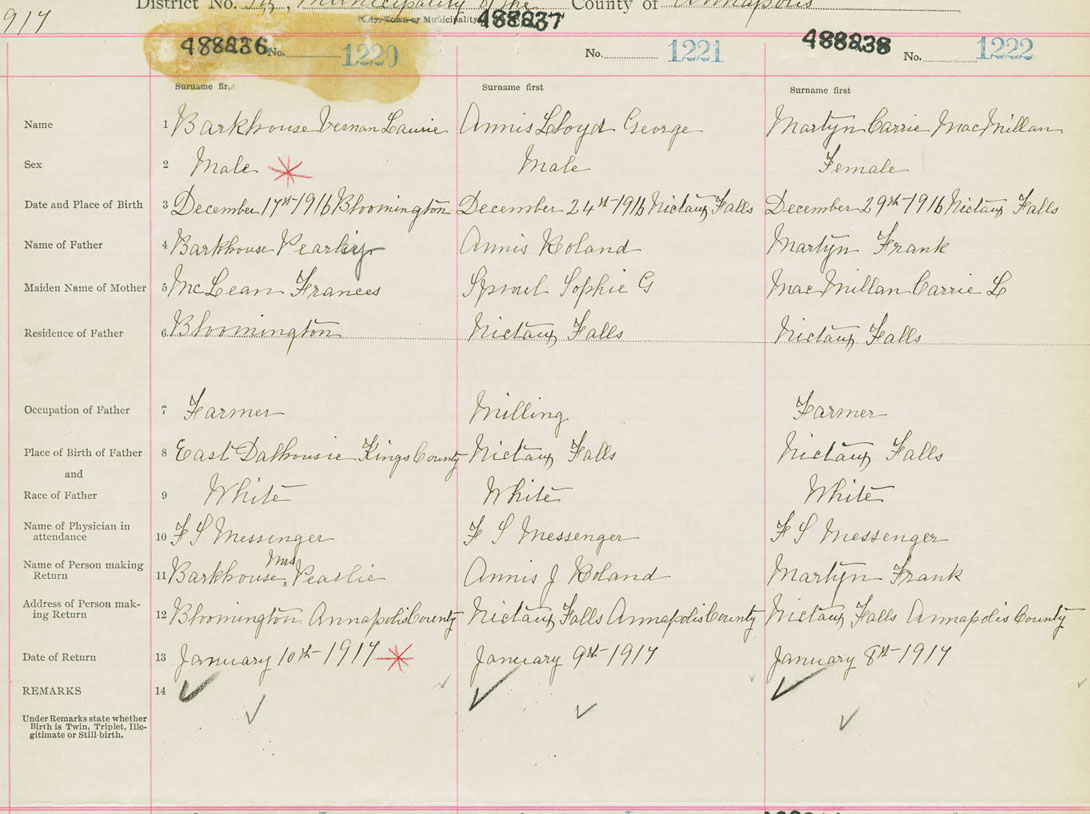 1917 District No. , Municipality of the County of Annapolis
(City, Town or Municipality)
488236 488237 488238
No. 1220 No. 1221 No. 1222
Surname first Surname first Surname first
Name 1 Barkhouse Vernan Laurie Annis Lloyd George Martyn Carrie MacMillan
Sex 2 Male Male Female
Date and Place of Birth 3 December 17th 1916 Bloomington December 24st 1916 Nictaux Falls December 29th 1916 Nictaux Falls
Name of Father 4 Barkhouse Pearley Annis Roland Martyn Frank
Maiden Name of Mother 5 McLean Frances Sproul Sophie G MacMillan Carrie L
Residence of Father 6 Bloomington Nictaux Falls Nictaux Falls
Occupation of Father 7 Farmer Milling Farmer
Place of Birth of Father 8 East Dalhousie Kings County Nictaux Falls Nictaux Falls
and
Race of Father 9 White White White
Name of Physician in
attendance 10 F S Messenger F S Messenger F S Messenger
Name of Person making
Return 11 Barkhouse Mrs Pearlie Annis J Roland Martyn Frank
Address of Person mak-
ing Return 12 Bloomington Annapolis County Nictaux Falls Annapolis County Nictaux Falls Annapolis County
Date of Return 13 January 10th 1917 January 9th 1917 January 8th 1917
REMARKS 14
Under Remarks state whether
Birth is Twin, Triplet, Ille-
gitimate or Still-birth.